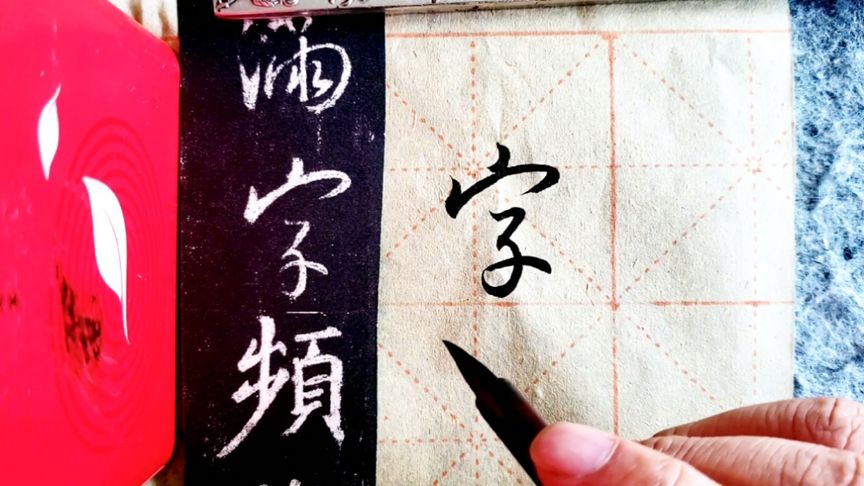 滿
字
頻
字